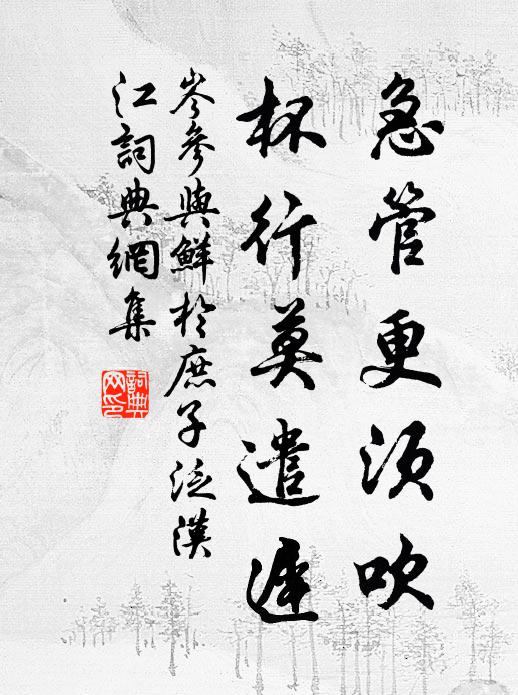 急管更須吹
杯行莫遣遲
岑參與鮮於庶子泛漢
江詞典網集
詞典
网印